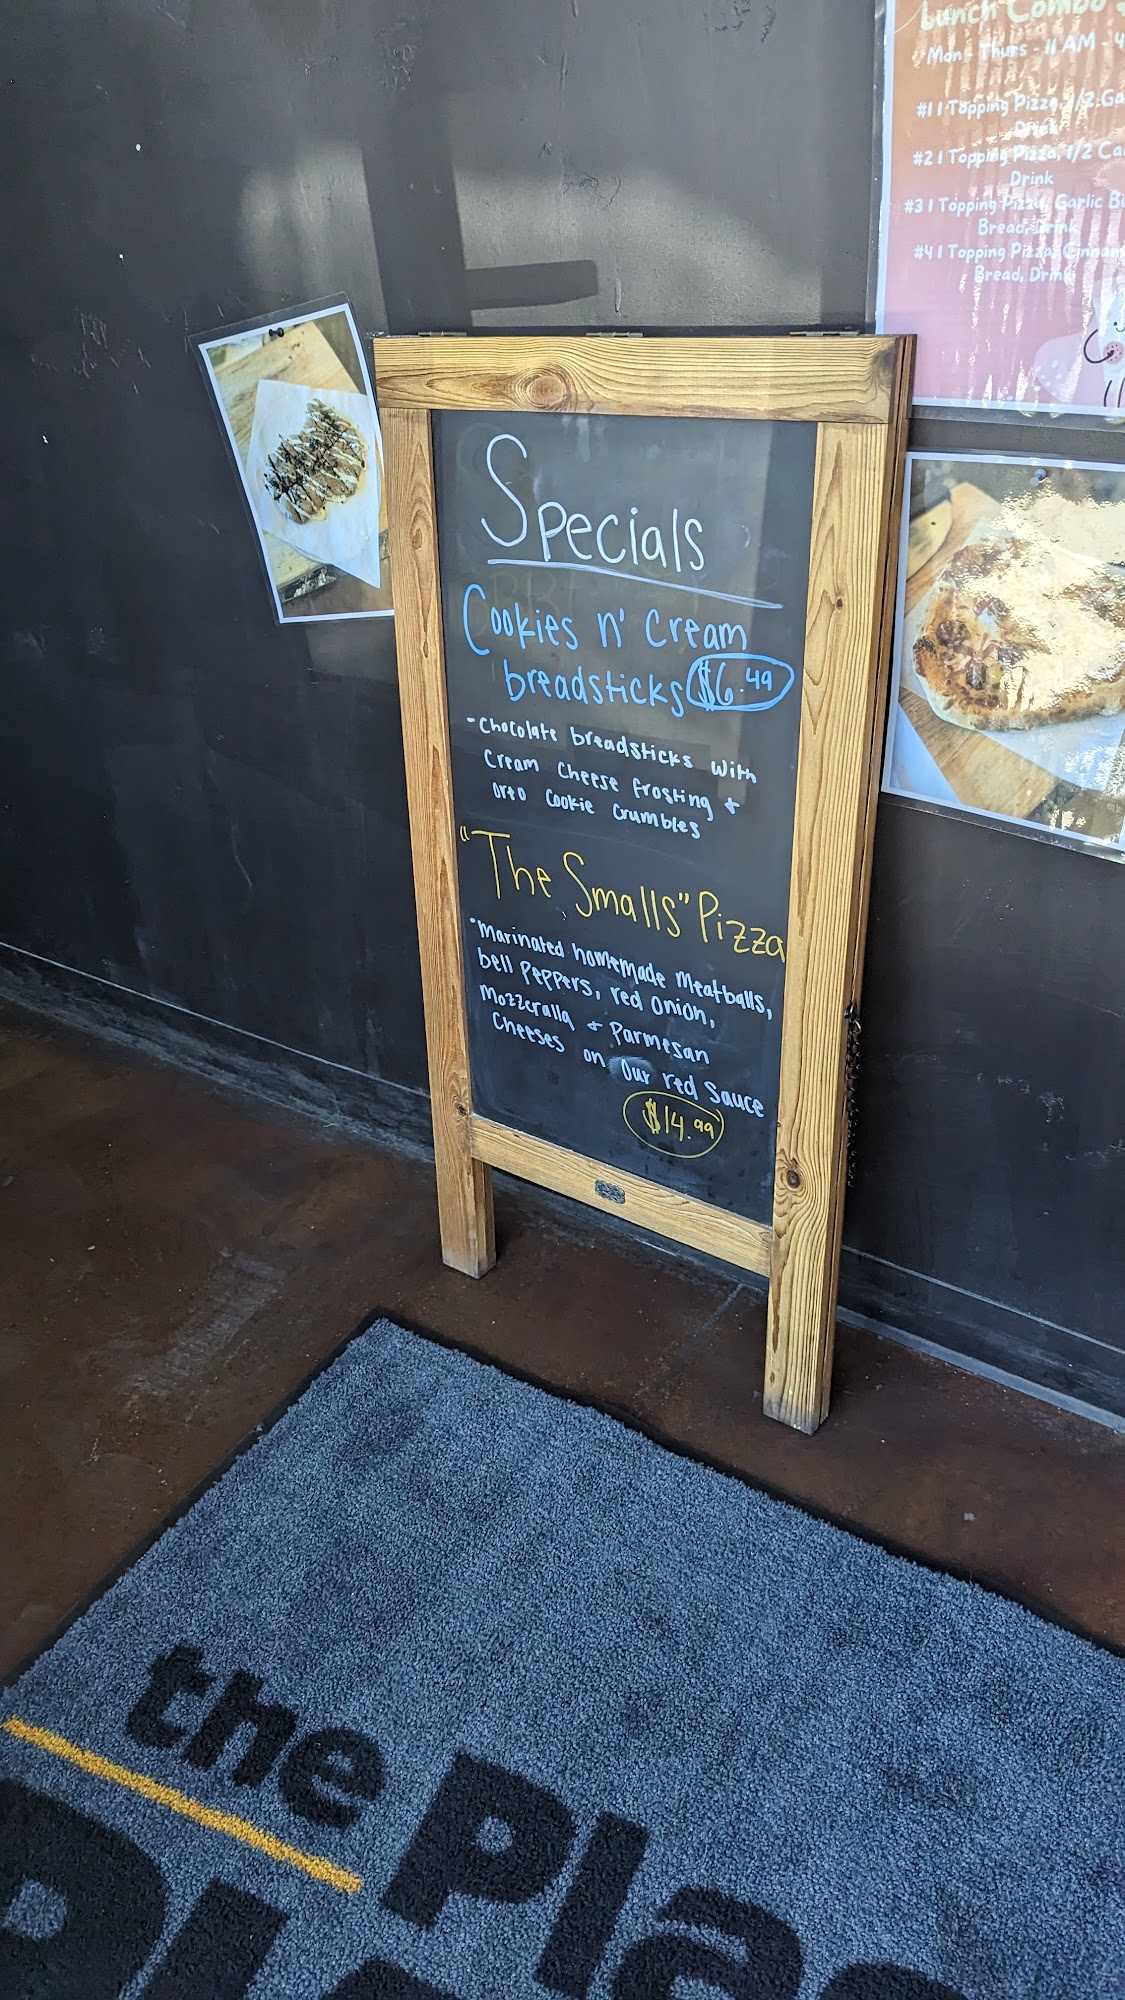 Lunch Combo
Mon - Thurs - 11 AM - 4
#1 1 Topping Pizza, 1/2
Drink
#2 1 Topping Pizza, 1/2
Drink
#3 1 Topping Pizza, Garlic
Bread, Drink
#4 1 Topping Pizza,
Bread, Drink
Specials
Cookies n' Cream
breadsticks $6.49
- Chocolate breadsticks with
Cream Cheese frosting +
Oreo Cookie Crumbles
"The Smalls" Pizza
• Marinated homemade Meatballs,
bell peppers, red onion,
Mozzeralla + Parmesan
Cheeses on our red sauce
$14.99
the Pla